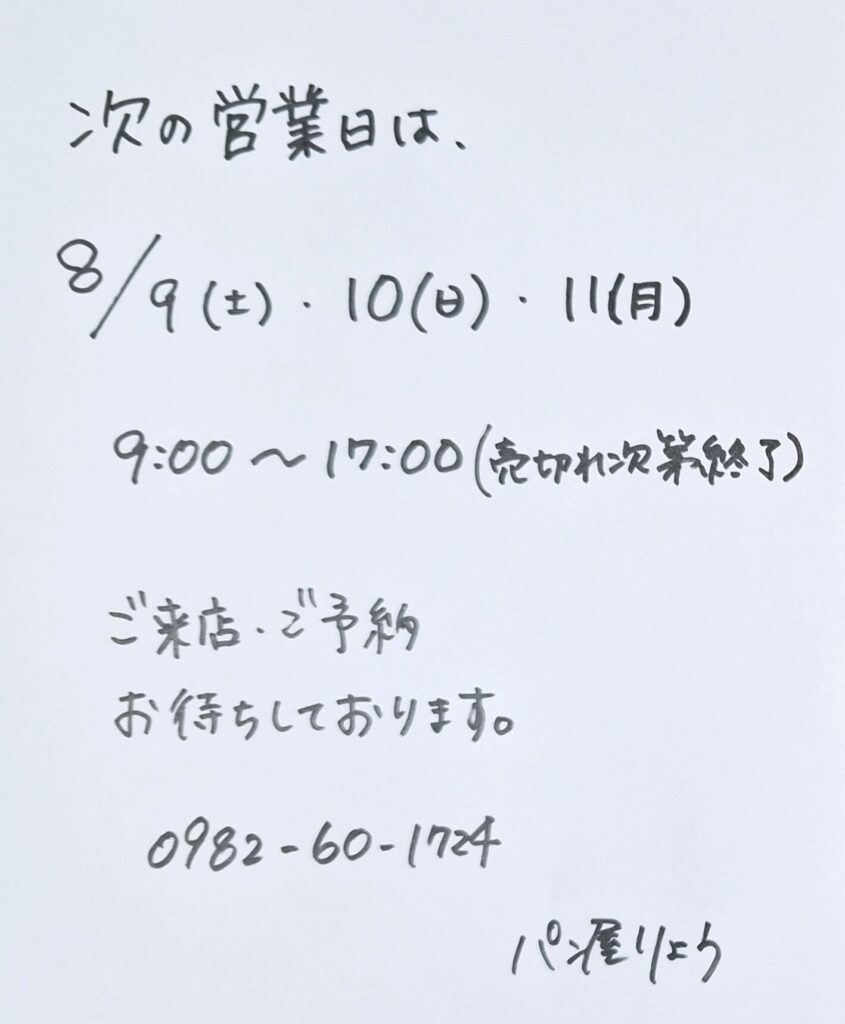 次の営業日は、
8/9(土)・10(日)・11(月)
9:00〜17:00(売切れ次第終了)
ご来店・ご予約
お待ちしております。
0982-60-1724
パン屋りょう